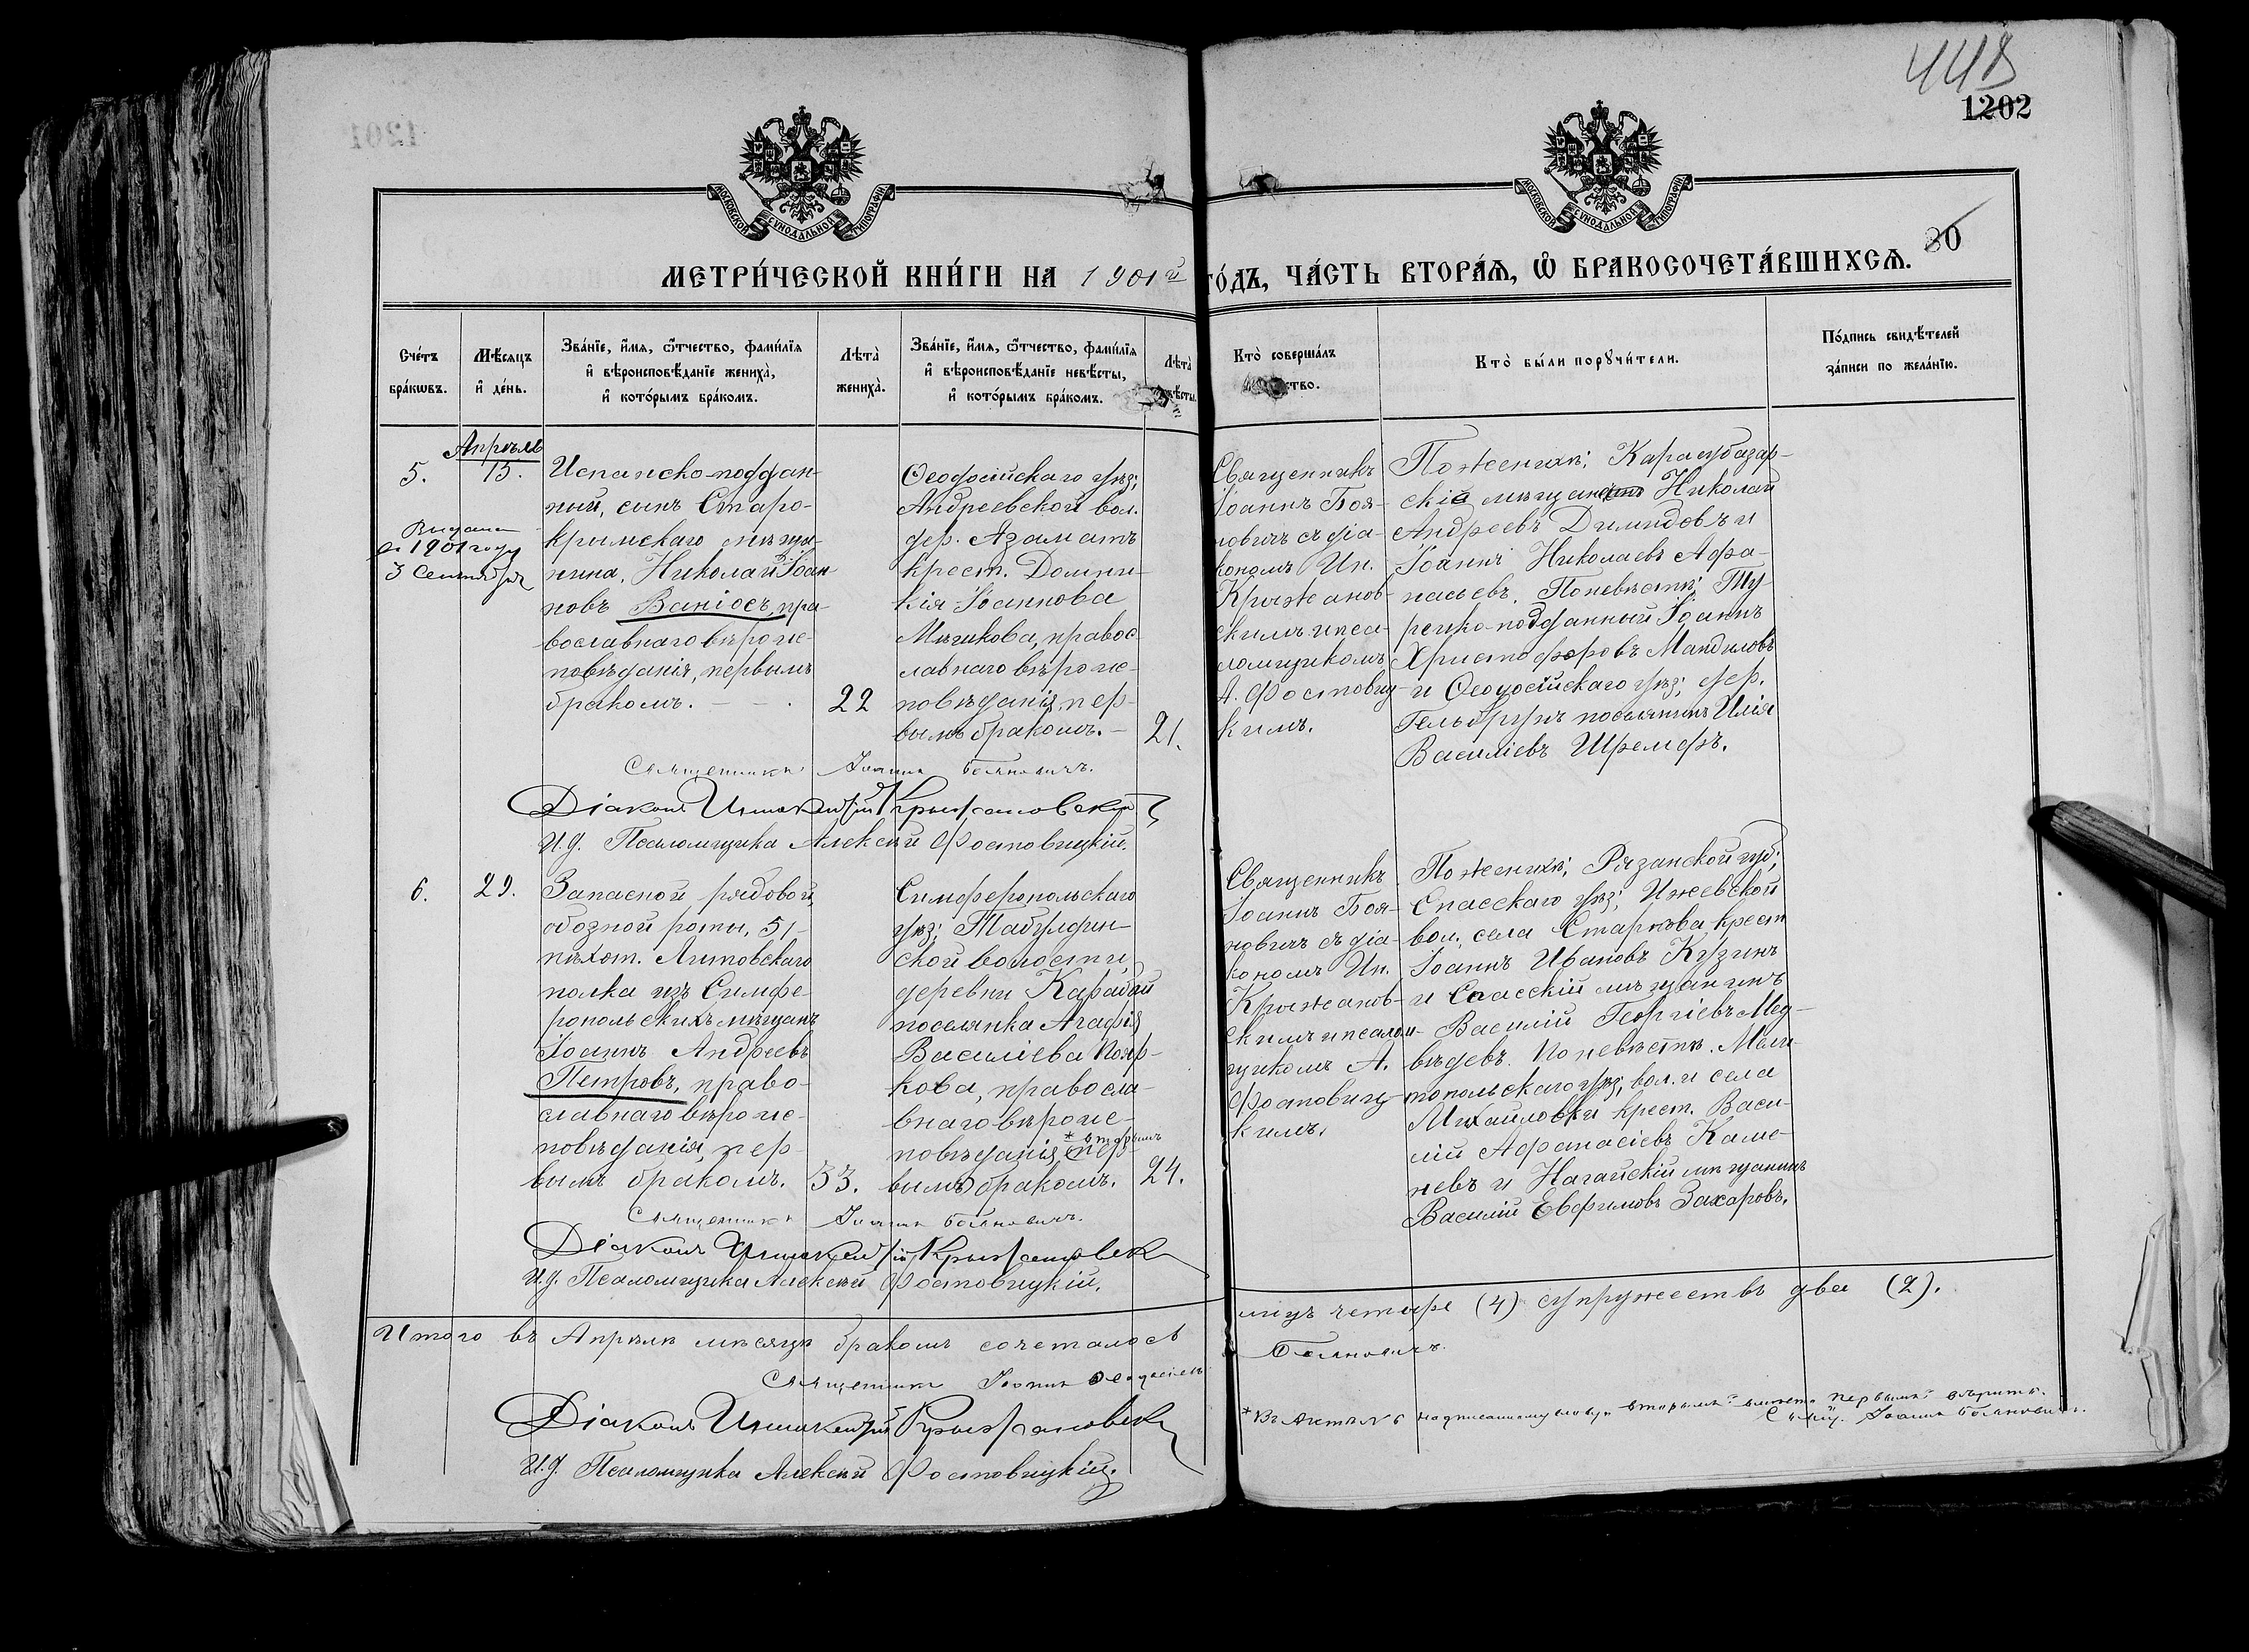 448
1202
1201
МОСКОВСКОЙ СУНОДАЛЬНОЙ ТИПОГРАФІИ
МОСКОВСКОЙ СУНОДАЛЬНОЙ ТИПОГРАФІИ
80
МЕТРИ́ЧЕСКОЙ КНИ́ГИ НА 1901й ГО́ДЪ, ЧА́СТЬ ВТОРА́Ѧ, Ѽ БРАКОСОЧЕТА́ВШИХСѦ.
Сче́тъ
бра́кѡвъ.
Мѣ́сѧцъ
и҆ де́нь.
Зва́нїе, и҆́мѧ, ѻ҆́тчество, фамѝлїѧ
и҆ вѣроисповѣ́данїе жениха̀,
и҆ кото́рымъ бра́комъ.
Лѣта̀
жениха̀.
Зва́нїе, и҆́мѧ, ѻ҆́тчество, фамѝлїѧ
и҆ вѣроисповѣ́данїе невѣ́сты,
и҆ кото́рымъ бра́комъ.
Лѣта̀
невѣ́сты.
Кто̀ соверша́лъ
ство.
Кто̀ бы́ли порꙋчи́тели.
По́дпись свидѣ́телей
за́писи по жела́нїю.
Апрѣль
5.
15.
Выдана
въ 1901 году
3 Сентября
Испанско-поддан-
ный, сынъ Старо-
крымскаго мѣща-
нина, Николай Іоан-
новъ Ваніосъ, пра-
вославнаго вѣроис-
повѣданія, первымъ
бракомъ.
22
Ѳеодосійскаго уѣз;
Андреевской вол.
дер. Азаматъ
крест. Домни-
кія Іоаннова
Мѣчикова, правос-
лавнаго вѣроис-
повѣданія, пер-
вымъ бракомъ.
21.
Священникъ
Іоаннъ Боя-
новичъ съ діа-
кономъ Ин.
Крыжанов-
скимъ и пса-
ломщикомъ
А. Фостовиц-
кимъ.
По женихѣ; Карасубазар-
скій мѣщанинъ Николай
Андреевъ Димидовъ и
Іоаннъ Николаевъ Афа-
насьевъ. По невѣстѣ; Ту-
рецко-подданный Іоаннъ
Христофоровъ Мандиловъ
и Ѳеодосійскаго уѣз; дер.
Гельбрунъ поселянинъ Илія
Василіевъ Шремфъ.
Священникъ Іоаннъ Бояновичъ.
Діаконъ Иннокентій Крыжановскій
И.д. Псаломщика Алексѣй Фостовицкій.
6.
29.
Запасной рядовой,
обозной роты, 51-
пѣхот. Литовскаго
полка изъ Симфе-
ропольскихъ мѣщанъ
Іоаннъ Андреевъ
Петровъ, право-
славнаго вѣроис-
повѣданія, пер-
вымъ бракомъ.
33.
Симферопольскаго
уѣз; Табулдин-
ской волости,
деревни Карабай
поселянка Агафія
Василіева Пояр-
кова, правосла-
внаго вѣроис-
* вторымъ
повѣданія, пер-
вымъ бракомъ.
24.
Священникъ
Іоаннъ Боя-
новичъ съ діа-
кономъ Ин.
Крыжанов-
скимъ и псалом-
щикомъ А.
Фостовиц-
кимъ.
По женихѣ; Рязанской губ;
Спасскаго уѣз; Ижевской
вол. села Старкова крест
Іоаннъ Ивановъ Кузинъ
и Спасскій мѣщанинъ
Василій Георгіевъ Мед-
вѣдевъ. По невѣстѣ. Мели-
топольскаго уѣз; вол. и села
Михайловки крест. Васи-
лій Афанасіевъ Каме-
невъ и Нагайскій мѣщанинъ
Василій Евфимовъ Захаровъ.
Священникъ Іоаннъ Бояновичъ.
Діаконъ Иннокентій Крыжановск
И.д. Псаломщика Алексѣй Фостовицкій.
Итого въ Апрѣлѣ мѣсяцѣ бракомъ сочеталось лицъ четыре (4) супружествъ два (2).
Священникъ Іоаннъ Бояновичъ.
Діаконъ Иннокентій Крыжановск
И.д. Псаломщика Алексѣй Фостовицкій.
* Въ актѣ № 6 надписанному слову „вторымъ" вмѣсто „первымъ" вѣрить.
Свящ. Іоаннъ Бояновичъ.